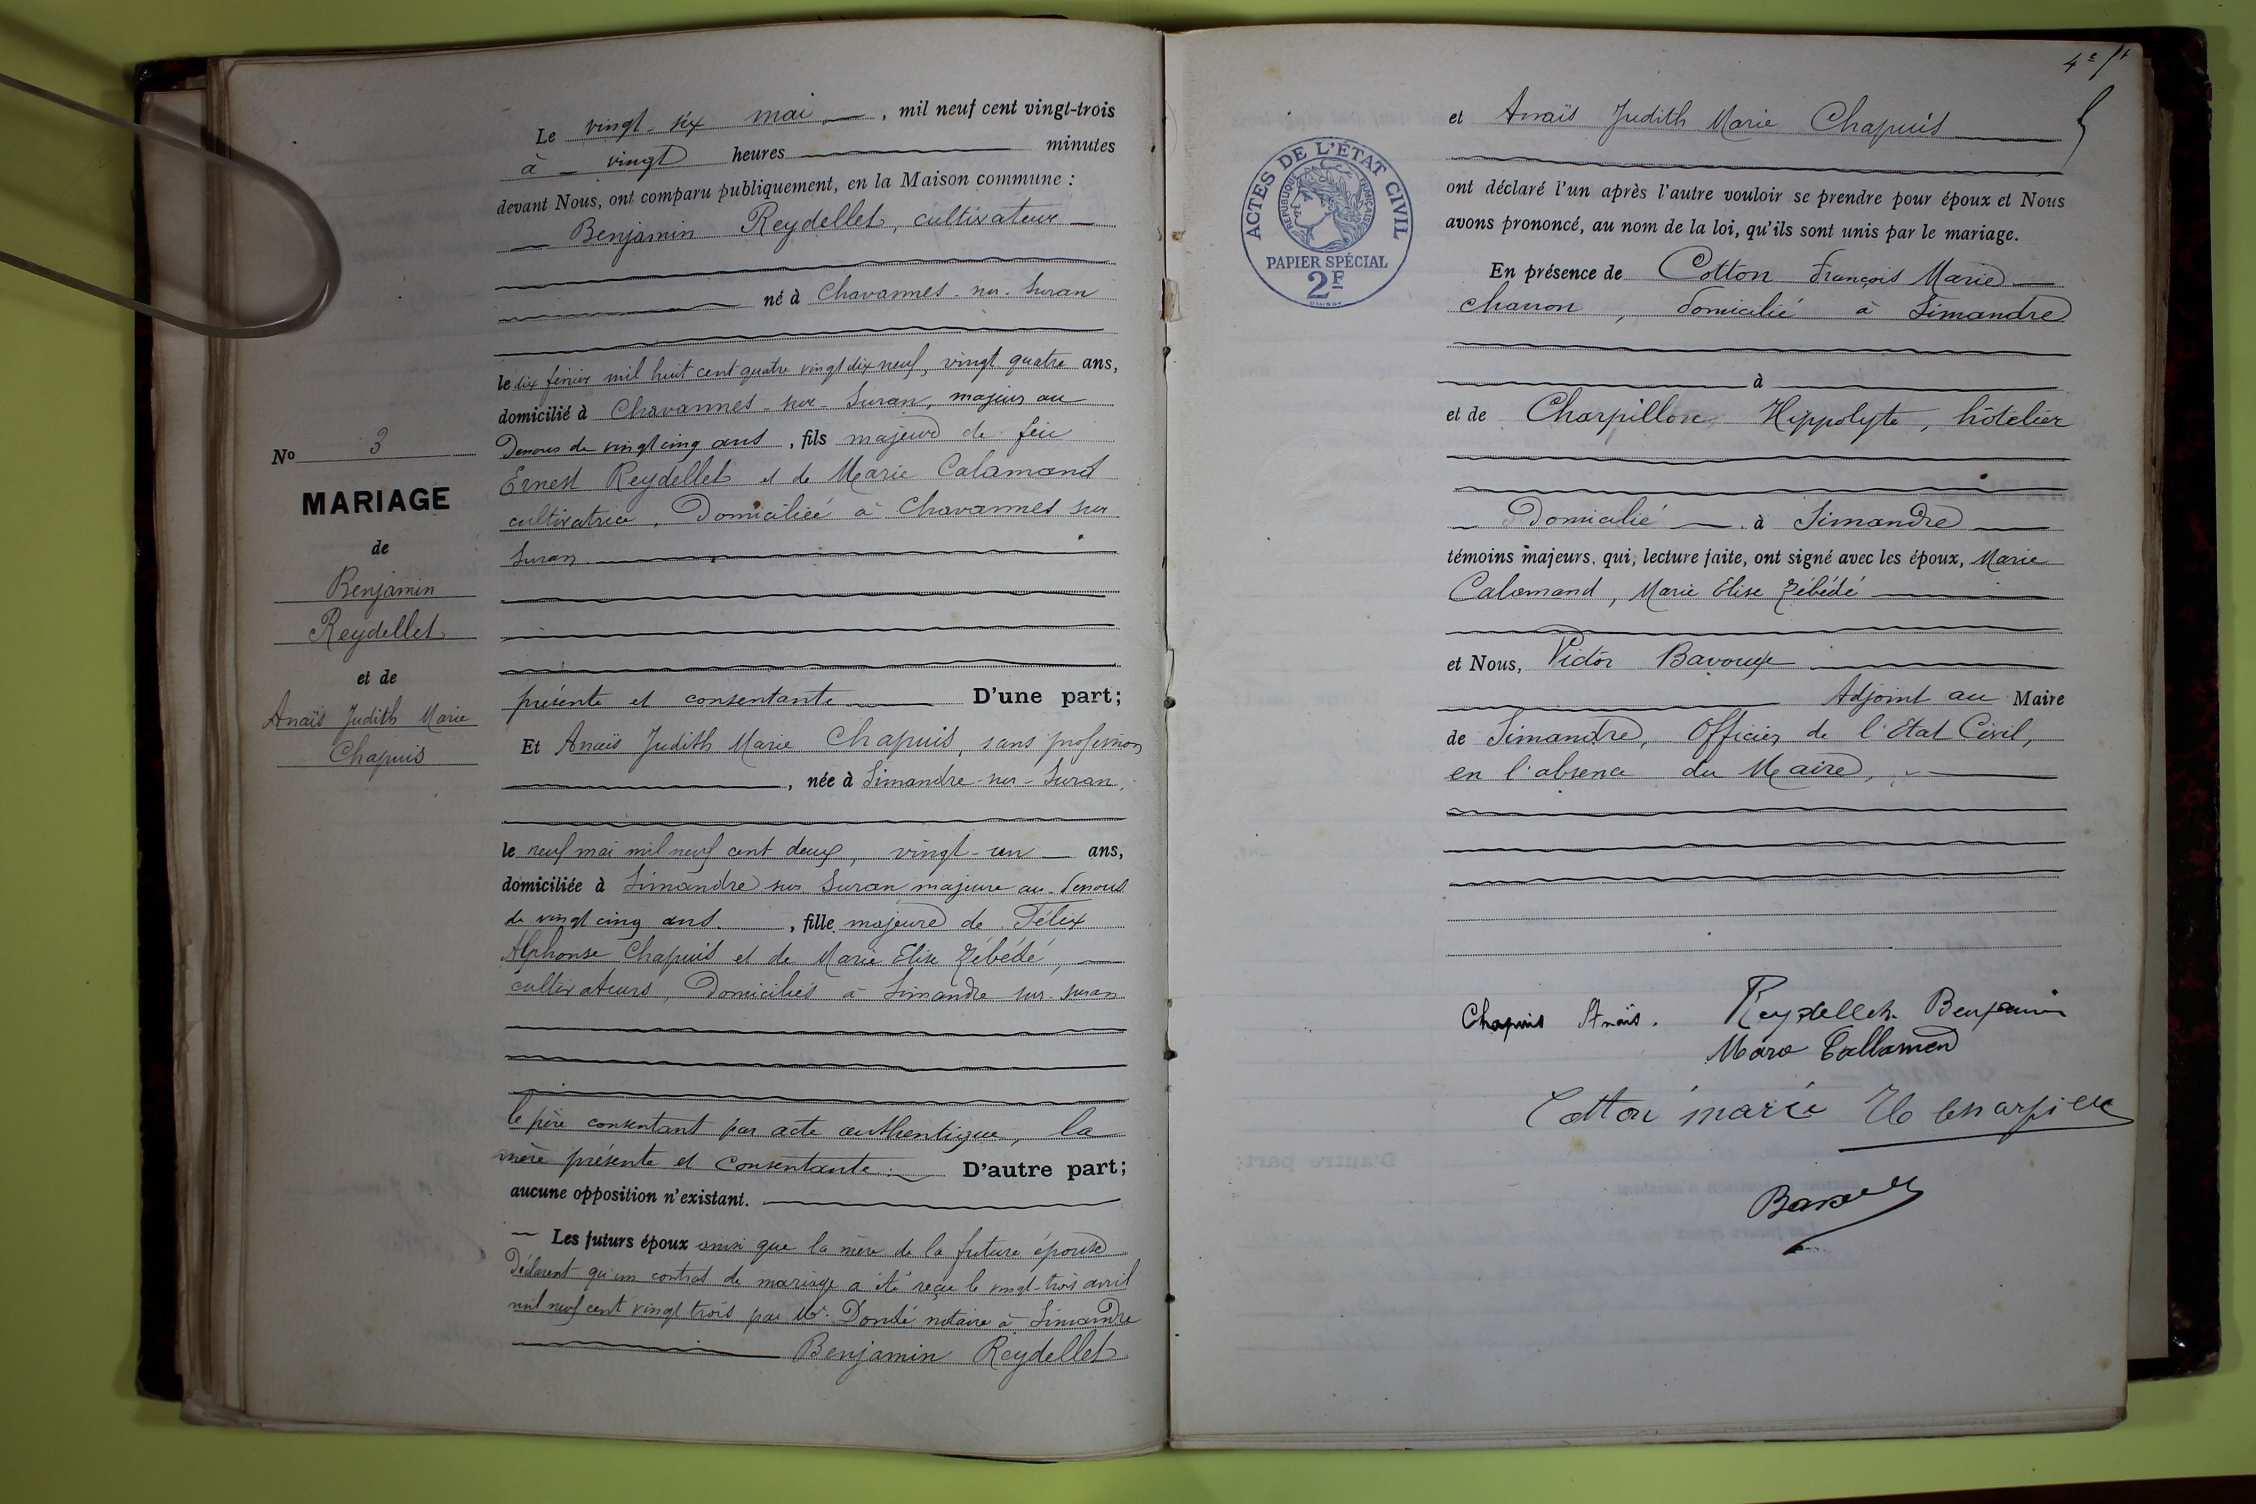 Le vingt-six mai, mil neuf cent vingt-trois
à vingt heures minutes
devant Nous, ont comparu publiquement, en la Maison commune :
Benjamin Reydellet, cultivateur
né à Chavannes-sur-Suran
le dix février mil huit cent quatre vingt dix neuf, vingt quatre ans,
domicilié à Chavannes-sur-Suran, majeur au
dessous de vingt cinq ans, fils majeur de feu
Ernest Reydellet et de Marie Calamand
cultivatrice, Domiciliée à Chavannes sur
Suran
présente et consentante D'une part;
Et Anaïs Judith Marie Chapuis, sans profession
, née à Simandre-sur-Suran,
le neuf mai mil neuf cent deux, vingt-un ans,
domiciliée à Simandre sur Suran majeure au-dessous
de vingt cinq ans, fille majeure de Félix
Alphonse Chapuis et de Marie Elise Zébédé,
cultivateurs, Domiciliés à Simandre sur-Suran
le père consentant par acte authentique, la
mère présente et consentante. D'autre part;
aucune opposition n'existant.
Les futurs époux ainsi que la mère de la future épouse
Déclarent qu'un contrat de mariage a été reçu le vingt-trois avril
mil neuf cent vingt trois par Me notaire à Simandre
Benjamin Reydellet
No 3
MARIAGE
de
Benjamin
Reydellet
et de
Anaïs Judith Marie
Chapuis
et Anaïs Judith Marie Chapuis
ont déclaré l'un après l'autre vouloir se prendre pour époux et Nous
avons prononcé, au nom de la loi, qu'ils sont unis par le mariage.
En présence de Cotton François Marie
charron, domicilié à Simandre
à
et de Charpillon Hippolyte, hôtelier
Domicilié à Simandre
témoins majeurs, qui, lecture faite, ont signé avec les époux, Marie
Calamand, Marie Elise Zébédé
et Nous, Victor Bavoux
Adjoint au Maire
de Simandre, Officier de l'Etat Civil,
en l'absence du Maire,
Chapuis Anaïs. Reydellet Benjamin
Cotton marie
ACTES DE L'ÉTAT CIVIL
RÉPUBLIQUE FRANÇAISE
PAPIER SPÉCIAL
2F